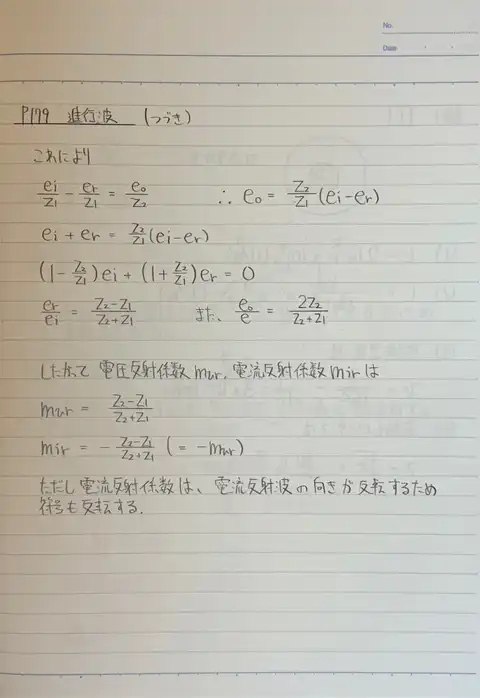 No.
Date
P179 進行波 (つづき)
これにより
ei/Z1 - er/Z1 = eo/Z2 ∴ eo = Z2/Z1 (ei-er)
ei + er = Z2/Z1 (ei-er)
(1 - Z2/Z1) ei + (1 + Z2/Z1) er = 0
er/ei = Z2-Z1/Z2+Z1 また、 eo/e = 2Z2/Z2+Z1
したがって 電圧反射係数 mur, 電流反射係数 mir は
mur = Z2-Z1/Z2+Z1
mir = - Z2-Z1/Z2+Z1 (= -mur)
ただし電流反射係数は、電流反射波の向きが反転するため
符号も反転する.